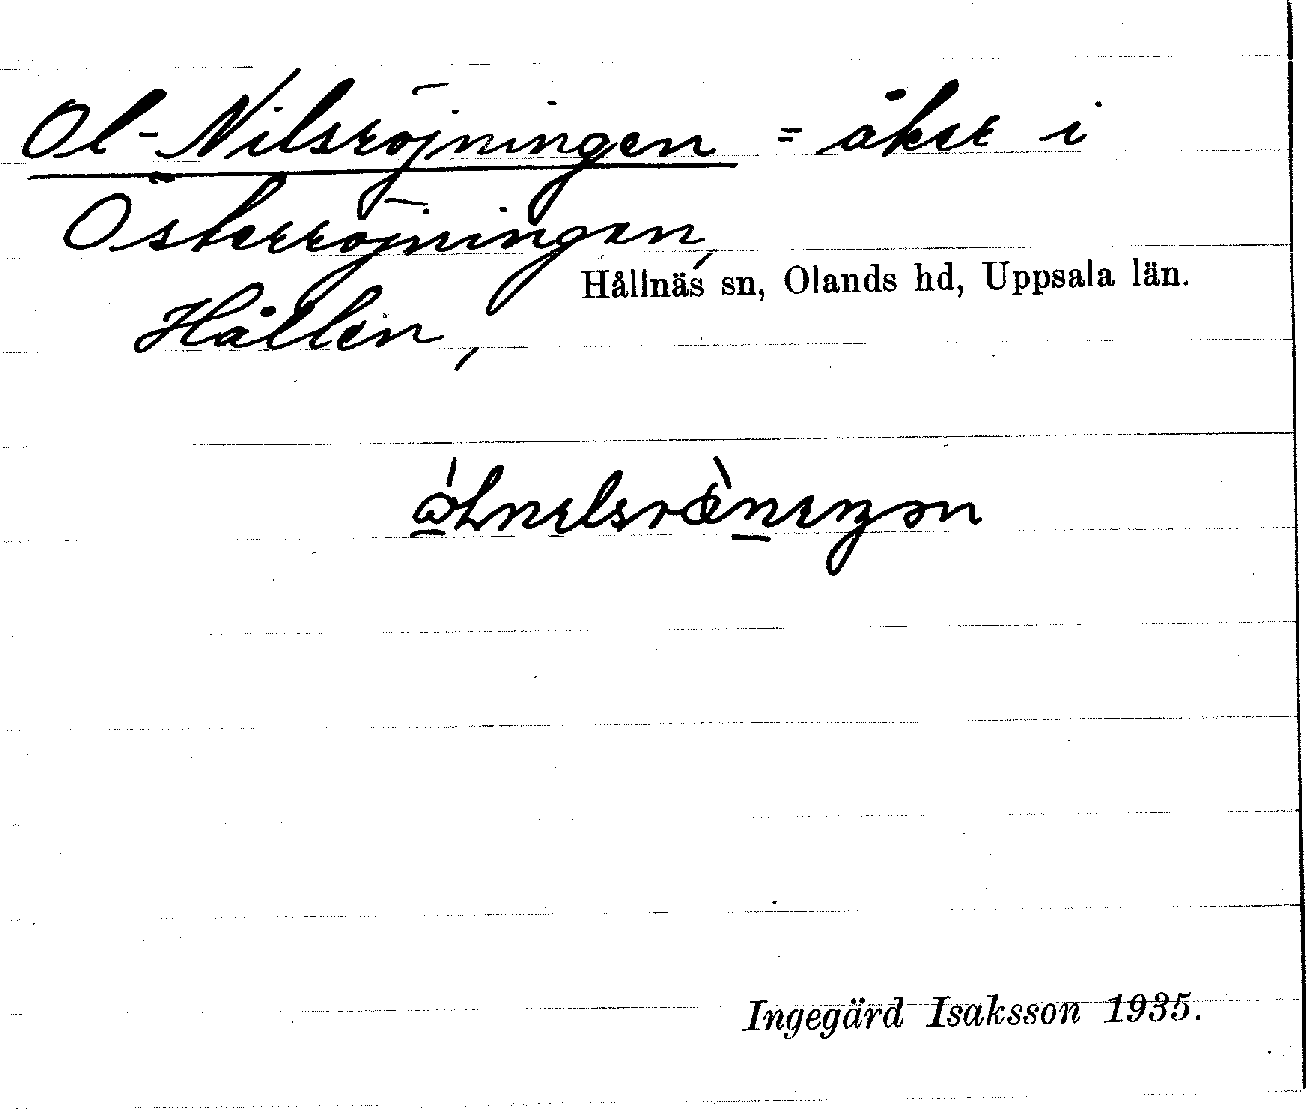 Ol-Nilsröjningen = åker i
Österröjningen,
Hållnäs sn, Olands hd, Uppsala län.
Hållen,
Ingegärd Isaksson 1935.